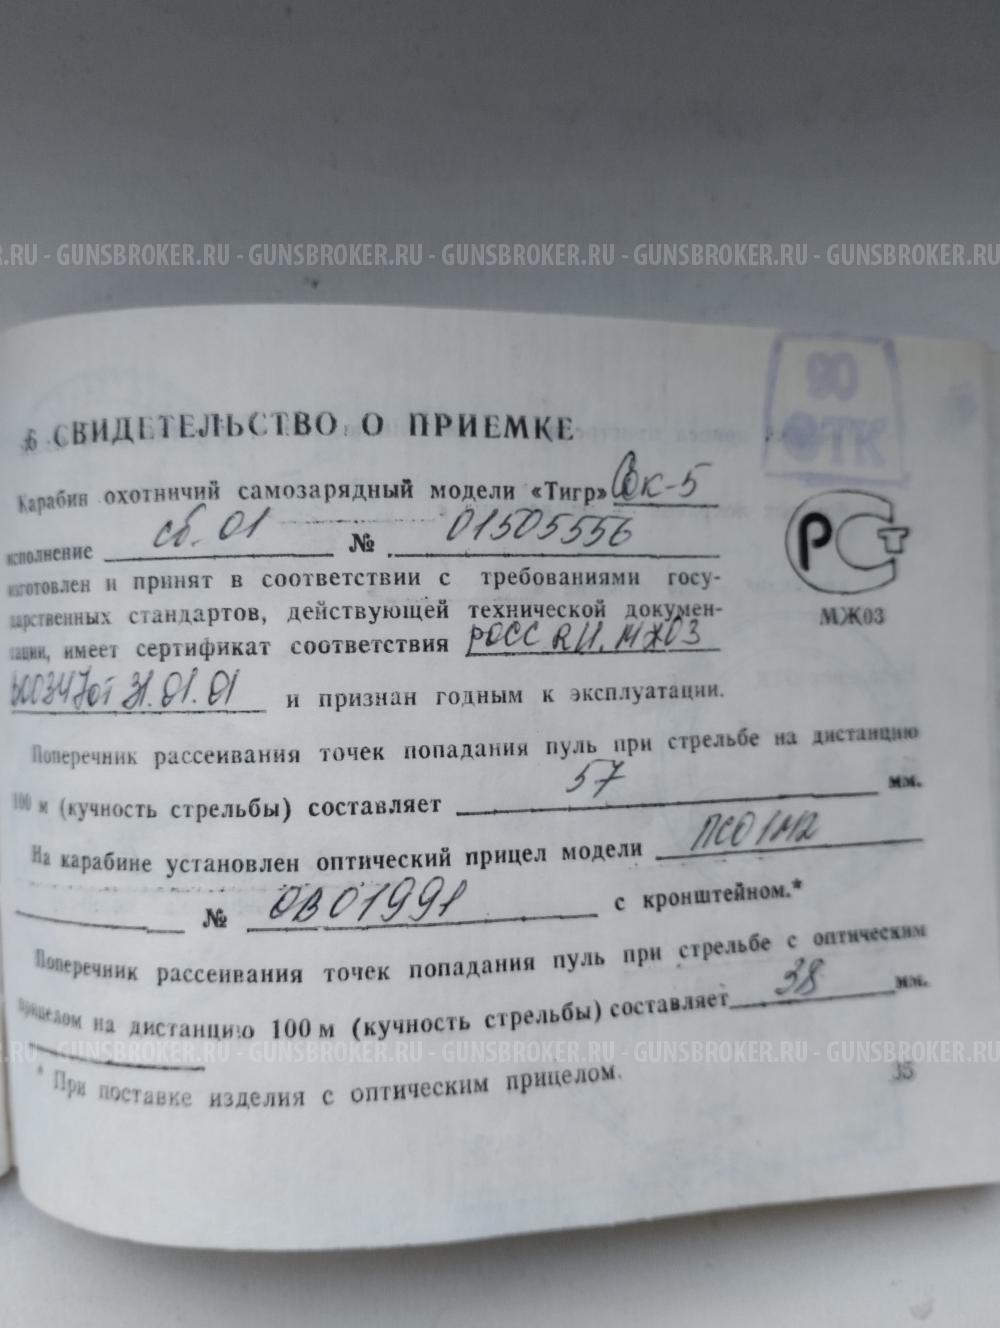 .RU - GUNSBROKER.RU - GUNSBROKER.RU - GUNSBROKER.RU - GUNSBROKER.RU
90
ОТК
6 СВИДЕТЕЛЬСТВО О ПРИЕМКЕ
Карабин охотничий самозарядный модели «Тигр» Ок-5
исполнение сб. 01 № 01505556
изготовлен и принят в соответствии с требованиями госу-
дарственных стандартов, действующей технической докумен-
тации, имеет сертификат соответствия РОСС RU. МЖ03
В00347 от 31.01.01 и признан годным к эксплуатации.
РСТ
МЖ03
Поперечник рассеивания точек попадания пуль при стрельбе на дистанцию
100 м (кучность стрельбы) составляет 57 мм.
На карабине установлен оптический прицел модели ПСО1М2
№ ОВ01991 с кронштейном.*
Поперечник рассеивания точек попадания пуль при стрельбе с оптическим
прицелом на дистанцию 100 м (кучность стрельбы) составляет 38 мм.
.RU - GUNSBROKER.RU - GUNSBROKER.RU - GUNSBROKER.RU - GUNSBROKER.RU
* При поставке изделия с оптическим прицелом.
35